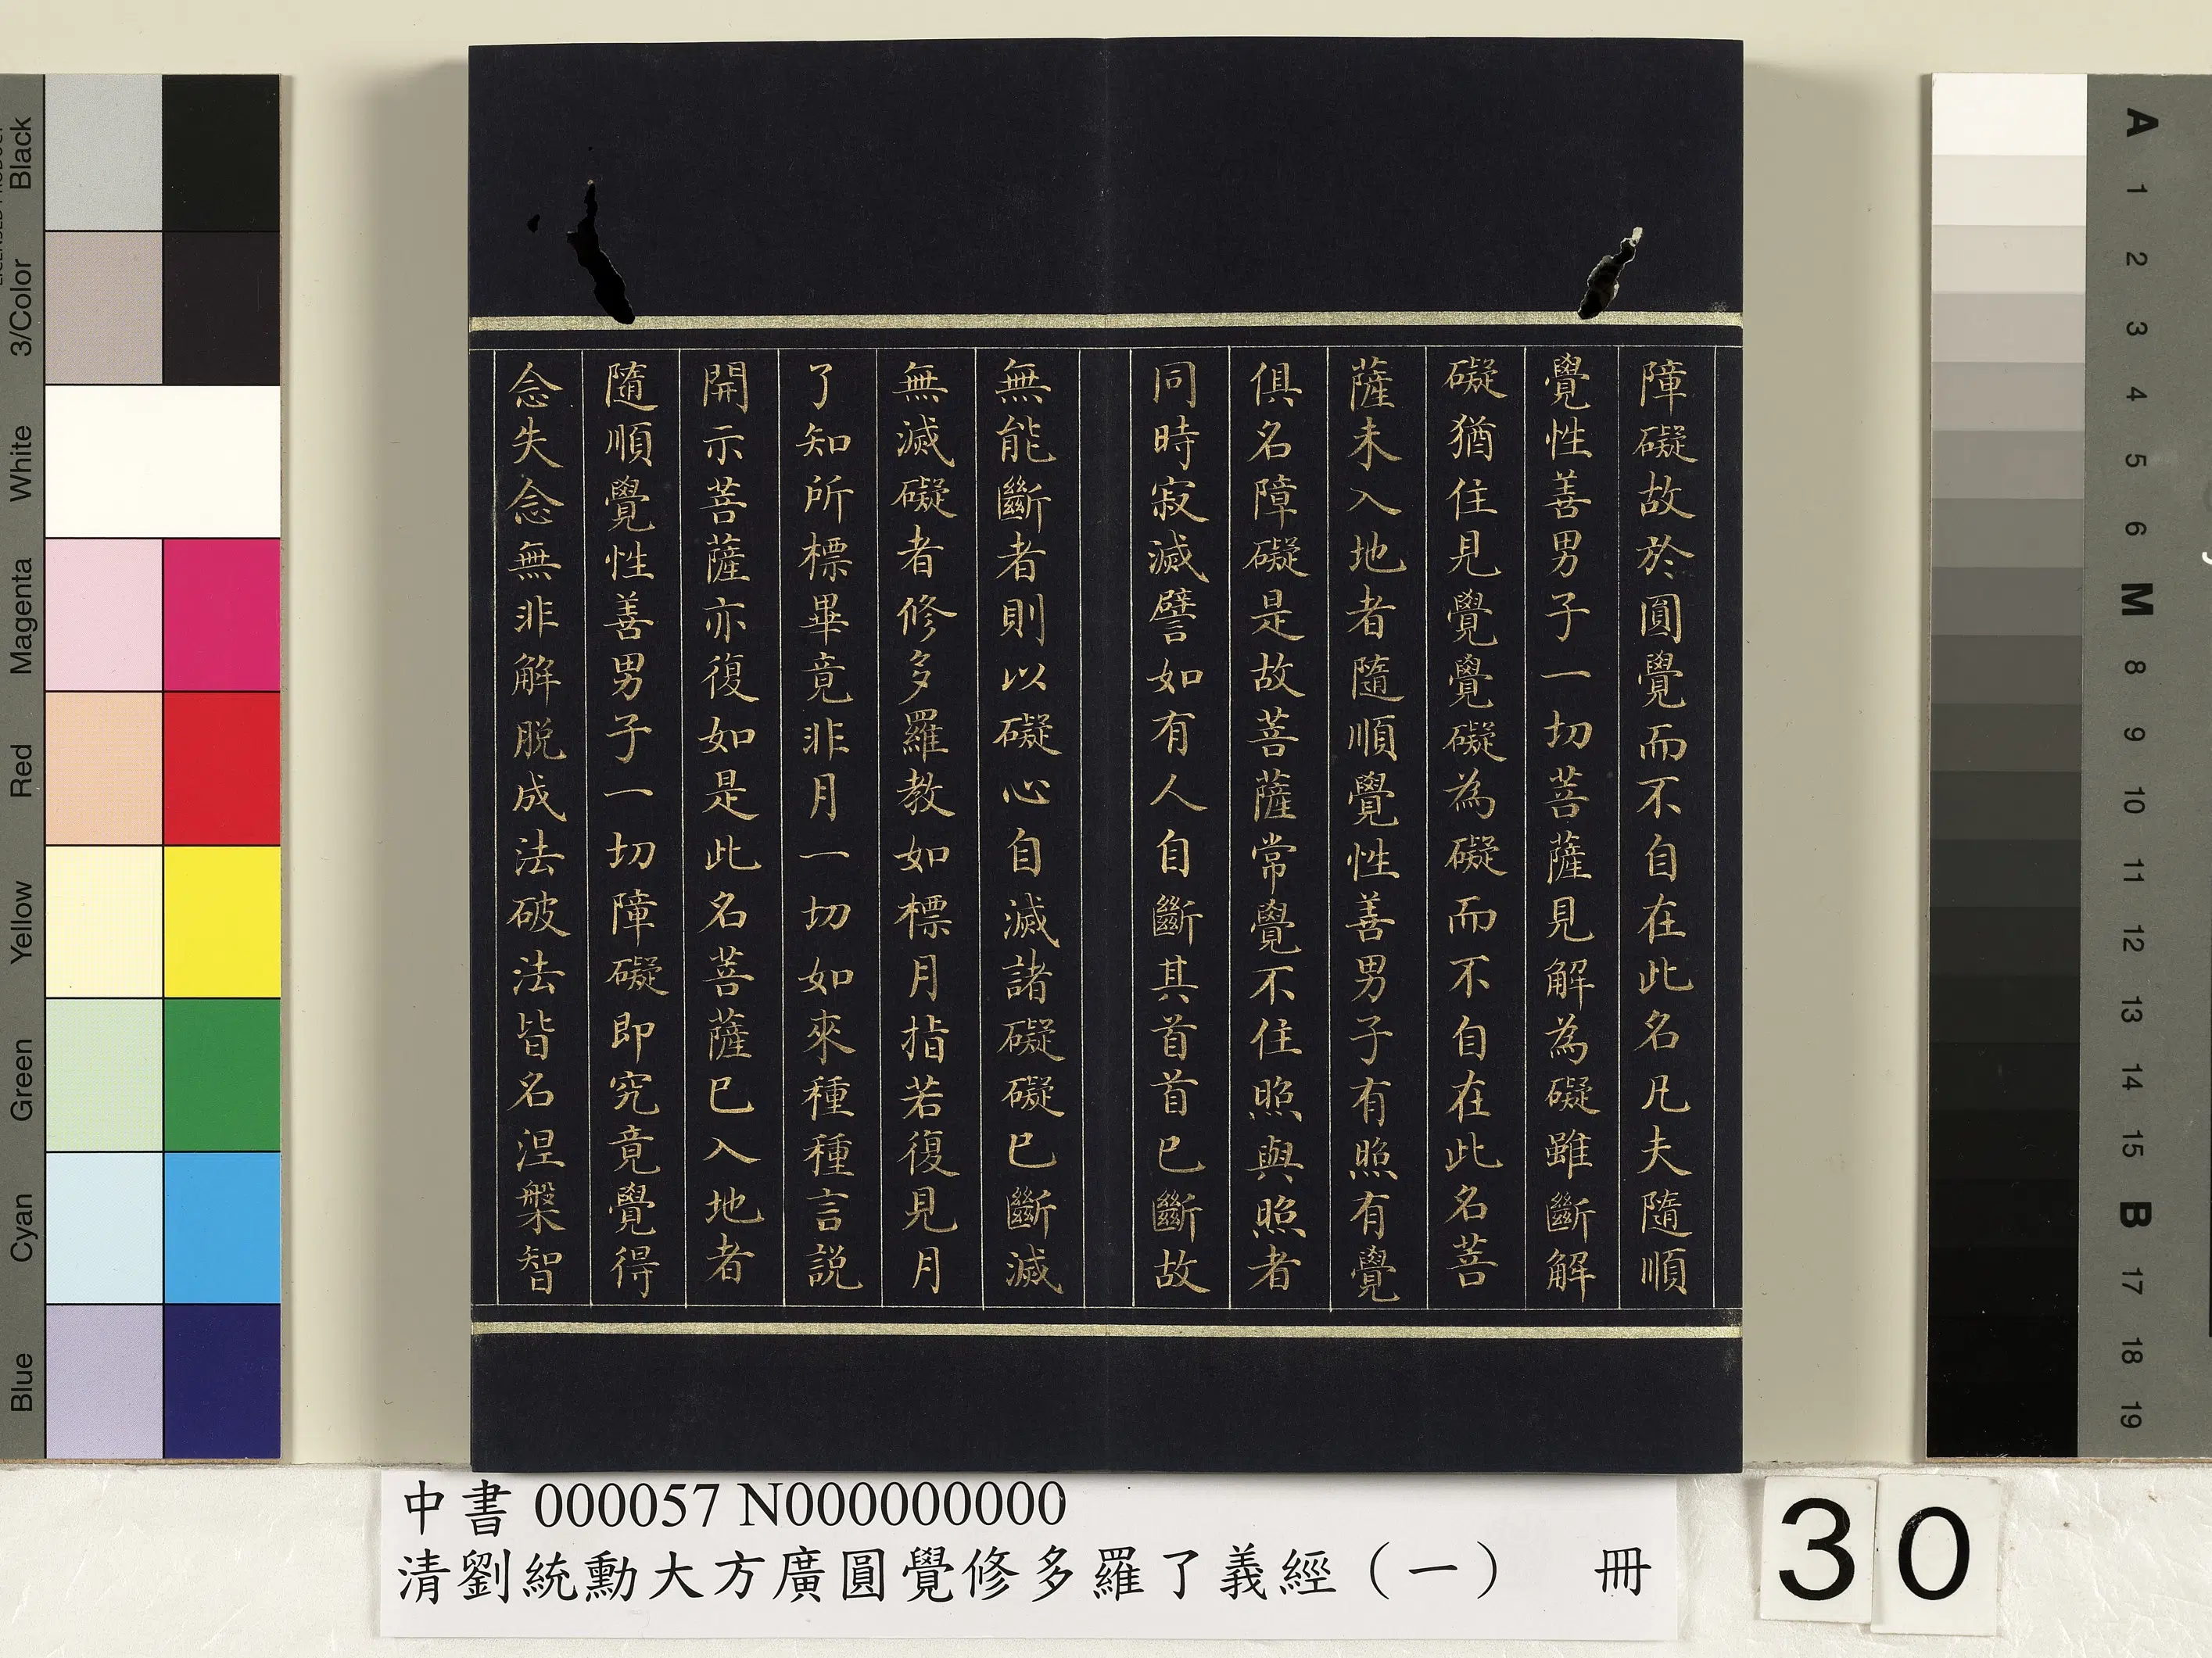 障礙故於圓覺而不自在此名凡夫隨順
覺性善男子一切菩薩見解為礙雖斷解
礙猶住見覺覺礙為礙而不自在此名菩
薩未入地者隨順覺性善男子有照有覺
俱名障礙是故菩薩常覺不住照與照者
同時寂滅譬如有人自斷其首首已斷故
無能斷者則以礙心自滅諸礙礙已斷滅
無滅礙者修多羅教如標月指若復見月
了知所標畢竟非月一切如來種種言說
開示菩薩亦復如是此名菩薩已入地者
隨順覺性善男子一切障礙即究竟覺得
念失念無非解脫成法破法皆名涅槃智
中書 000057 N000000000
清劉統勳大方廣圓覺修多羅了義經（一） 冊
30
Black
3/Color
White
Magenta
Red
Yellow
Green
Cyan
Blue
A
1
2
3
4
5
6
M
8
9
10
11
12
13
14
15
B
17
18
19